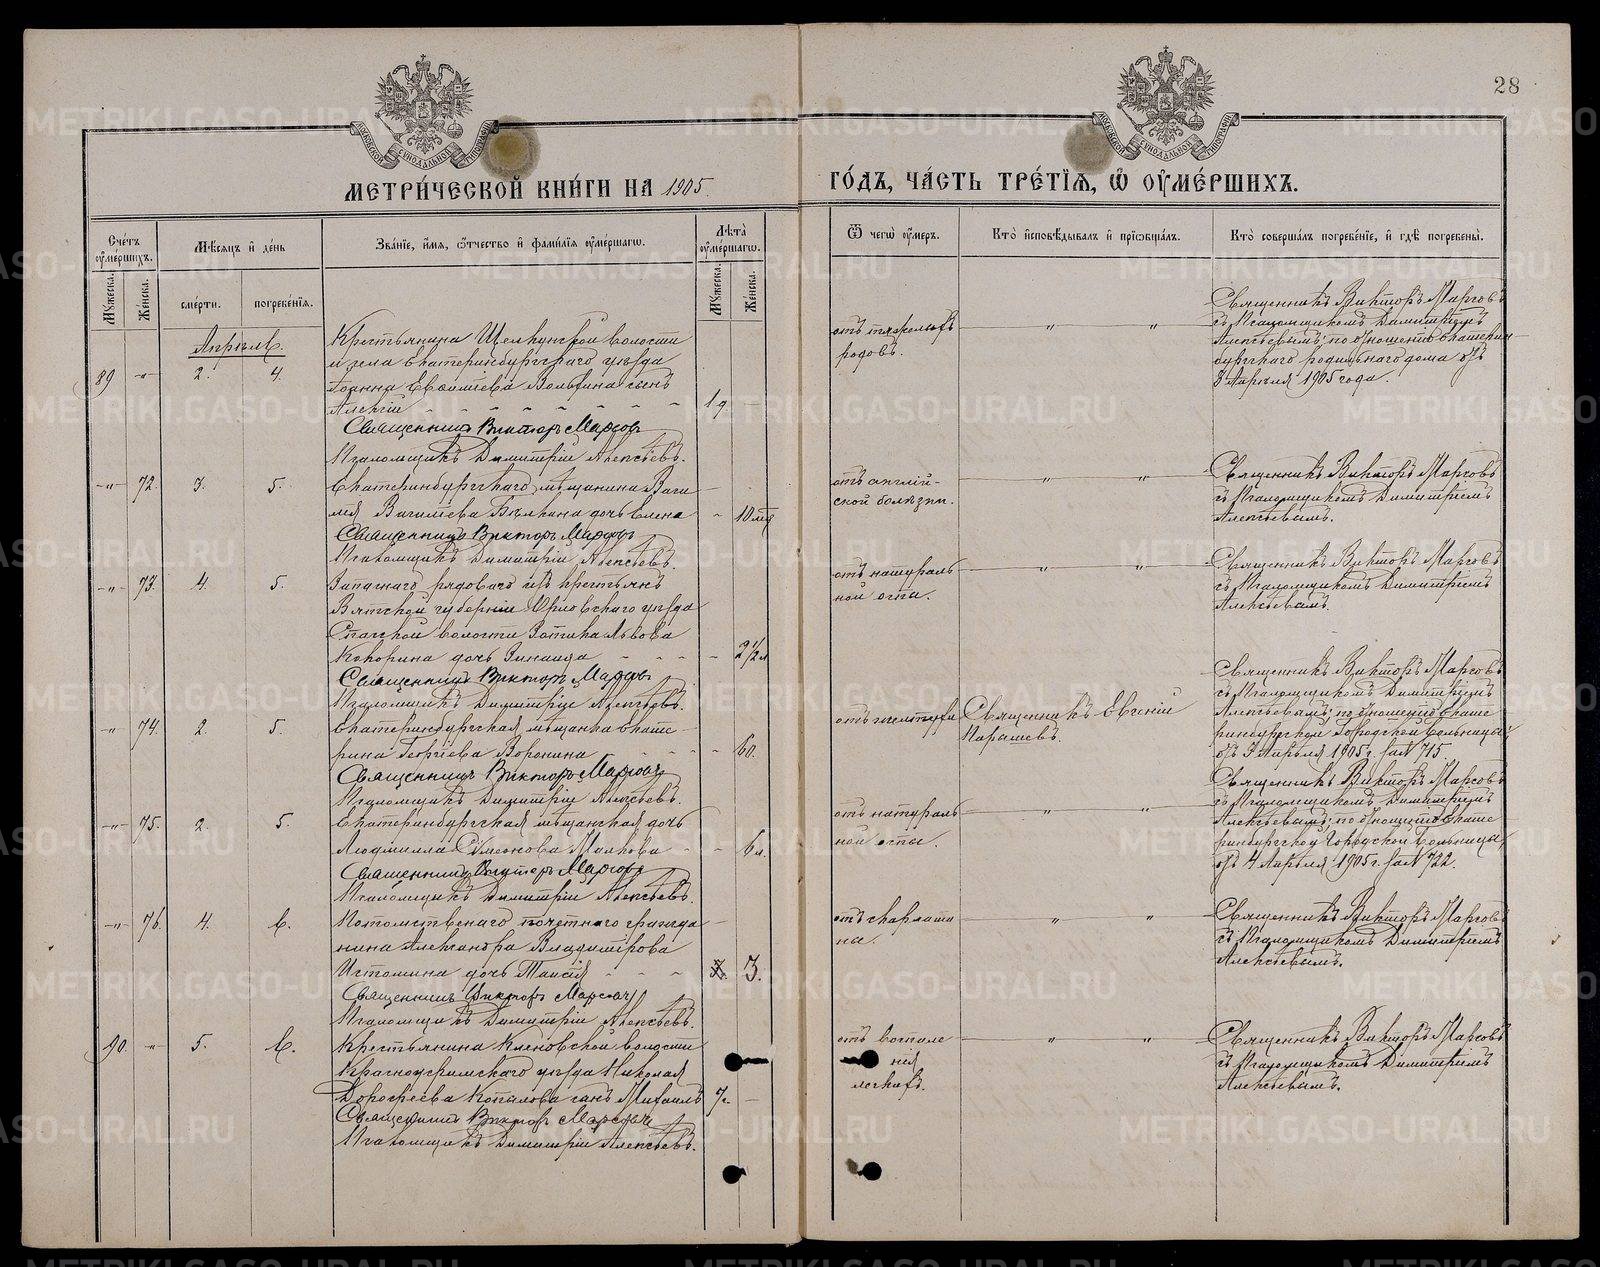 28
МОСКОВСКОЙ СѴНОДАЛЬНОЙ ТИПОГРАФІИ
МОСКОВСКОЙ СѴНОДАЛЬНОЙ ТИПОГРАФІИ
МЕТРИ́ЧЕСКОЙ КНИ́ГИ НА 1905.
ГО́ДЪ, ЧА́СТЬ ТРЕ́ТІѦ, Ѡ҆ ОУ҆МЕ́РШИХЪ.
Сче́тъ оу҆ме́ршихъ.
Мꙋ́жеска.
Же́нска.
Мѣ́сѧцъ и҆ де́нь
сме́рти.
погребе́нїѧ.
Зва́нїе, и҆́мѧ, ѻ҆́тчество и҆ фами́лїѧ оу҆ме́ршагѡ.
Лѣ́та оу҆ме́ршагѡ.
Мꙋ́жеска.
Же́нска.
Ѿ чегѡ̀ оу҆́меръ.
Кто̀ и҆сповѣ́дывалъ и҆ прїѡбща́лъ.
Кто̀ соверша́лъ погребе́нїе, и҆ гдѣ̀ погребены̀.
Апрѣль.
89 -"- 2. 4.
Крестьянина Щелкунской волости
и села Екатеринбургскаго уѣзда
Іоанна Евѳиміева сынъ
Алексій 1 д.
Священникъ Викторъ Марсовъ
Псаломщикъ Димитрій Алексѣевъ.
отъ тяжелыхъ
родовъ.
" "
Священникъ Викторъ Марсовъ
съ Псаломщикомъ Димитріемъ
Алексѣевымъ; по отношенію Екатерин-
бургскаго родильнаго дома отъ
3 Апрѣля 1905 года.
-"- 72. 3. 5.
Екатеринбургскаго мѣщанина Васи
лія Василіева Бѣлкина дочь Елена " 10 мѣс
Священникъ Викторъ Марсовъ
Псаломщикъ Димитрій Алексѣевъ.
отъ англій-
ской болѣзни.
" "
Священникъ Викторъ Марсовъ
съ Псаломщикомъ Димитріемъ
Алексѣевымъ.
-"- 73. 4. 5.
Запаснаго рядоваго изъ крестьянъ
Вятской губерніи Орловскаго уѣзда
Спасской волости Зотика Львова
дочь Зинаида 2 1/2 л
Священникъ Викторъ Марсовъ
Псаломщикъ Димитрій Алексѣевъ.
отъ натураль
ной оспы.
" "
Священникъ Викторъ Марсовъ
съ Псаломщикомъ Димитріемъ
Алексѣевымъ.
-"- 74. 2. 5.
Екатеринбургская мѣщанка Екате
рина Георгіева Воронина 60.
Священникъ Викторъ Марсовъ
Псаломщикъ Димитрій Алексѣевъ.
отъ желтухи
Священникъ Евгеній
Священникъ Викторъ Марсовъ
съ Псаломщикомъ Димитріемъ
Алексѣевымъ; по отношенію Екате
ринбургской Городской больницы
отъ 3 Апрѣля 1905 г. за № 715.
-"- 75. 2. 5.
Екатеринбургская мѣщанская дочь
Людмилла Симеонова 6 л.
Священникъ Викторъ Марсовъ
Псаломщикъ Димитрій Алексѣевъ.
отъ натураль
ной оспы.
" "
Священникъ Викторъ Марсовъ
съ Псаломщикомъ Димитріемъ
Алексѣевымъ; по отношенію Екате
ринбургской Городской больницы,
отъ 4 Апрѣля 1905 г. за № 722.
-"- 76. 4. 6.
Потомственаго почетнаго гражда
нина Александра Владимірова
Истомина дочь Таисія 3.
Священникъ Викторъ Марсовъ
Псаломщикъ Димитрій Алексѣевъ.
отъ скарлати
ны.
" "
Священникъ Викторъ Марсовъ
съ Псаломщикомъ Димитріемъ
Алексѣевымъ.
90. -"- 5. 6.
Крестьянина Кленовской волости
Красноуфимскаго уѣзда Николая
Дороѳеева Копылова сынъ Михаилъ 7
Священникъ Викторъ Марсовъ
Псаломщикъ Димитрій Алексѣевъ.
отъ воспале
нія
легкихъ.
" "
Священникъ Викторъ Марсовъ
съ Псаломщикомъ Димитріемъ
Алексѣевымъ.
METRIKI.GASO-URAL.RU